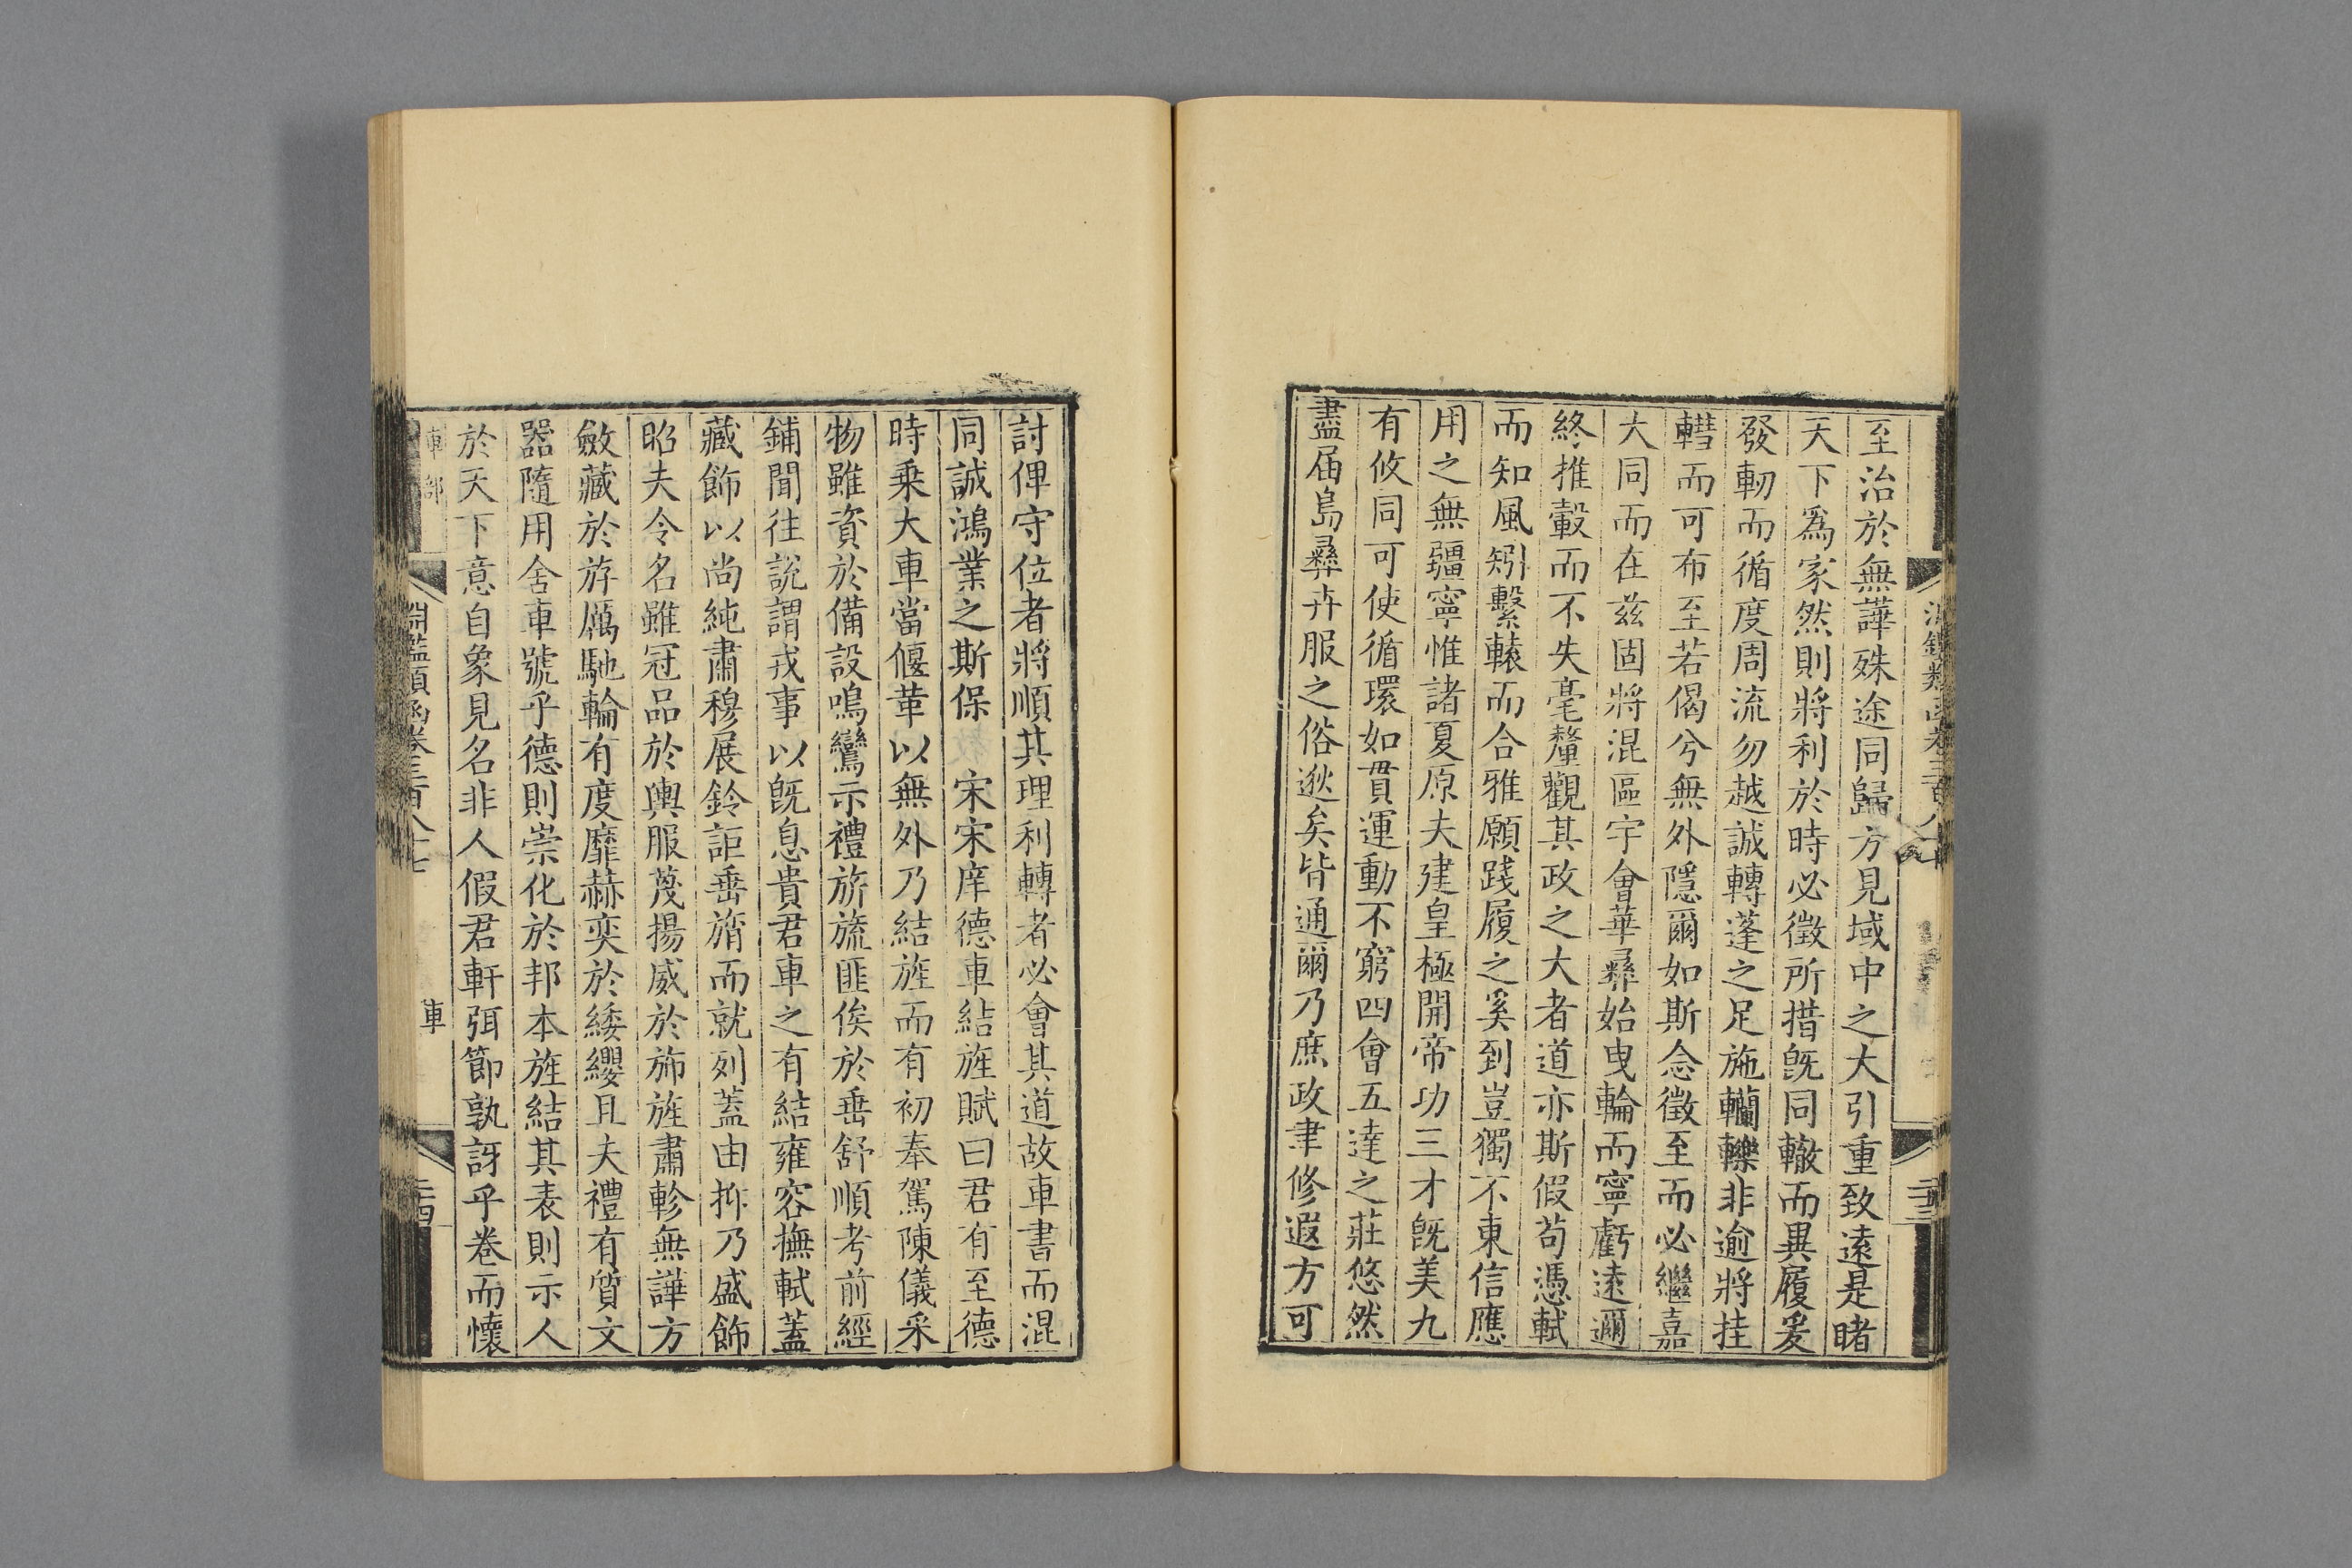 至治於無譁殊途同歸方見域中之大引重致遠是睹
天下爲家然則將利於時必徵所措旣同轍而異履爰
發軔而循度周流勿越誠轉蓬之足施轥轢非逾將挂
轊而可布至若偈兮無外隱爾如斯念徵至而必繼嘉
大同而在兹固將混區宇會華彞始曳輪而寧虧遠邇
終推轂而不失毫釐觀其政之大者道亦斯假苟憑軾
而知風矧繫轅而合雅願踐履之奚到豈獨不東信應
用之無疆寧惟諸夏原夫建皇極開帝功三才旣美九
有攸同可使循環如貫運動不窮四會五達之莊悠然
盡届島彞卉服之俗逖矣皆通爾乃庶政聿修遐方可
討俾守位者將順其理利轉者必會其道故車書而混
同誠鴻業之斯保　宋宋庠德車結旌賦曰君有至德
時乗大車當偃革以無外乃結旌而有初奉駕陳儀采
物雖資於備設鳴鸞示禮旂旒匪俟於垂舒順考前經
鋪聞往說謂戎事以旣息貴君車之有結雍容撫軾蓋
藏飾以尚純肅穆展鈴詎垂旓而就列蓋由抑乃盛飾
昭夫令名雖冠品於輿服茂揚威於斾旌肅軫無譁方
斂藏於斿厲馳輪有度靡赫奕於緌纓且夫禮有質文
器隨用舍車號乎德則崇化於邦本旌結其表則示人
於天下意自象見名非人假君軒弭節孰訝乎卷而懷
車部
淵鑑類函卷三百八十七
車
二十四